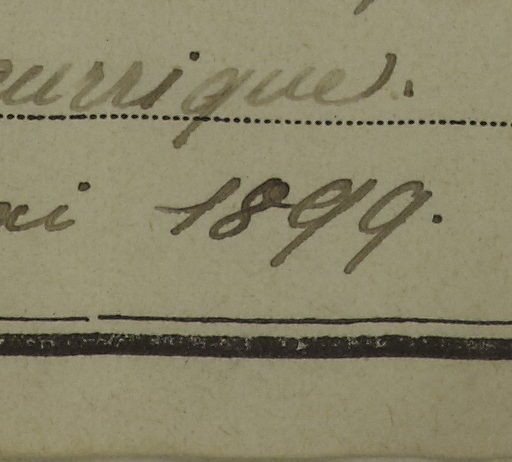 urrique).
ai 1899.